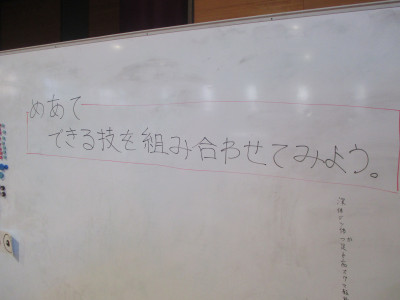 めあて
できる技を組み合わせてみよう。